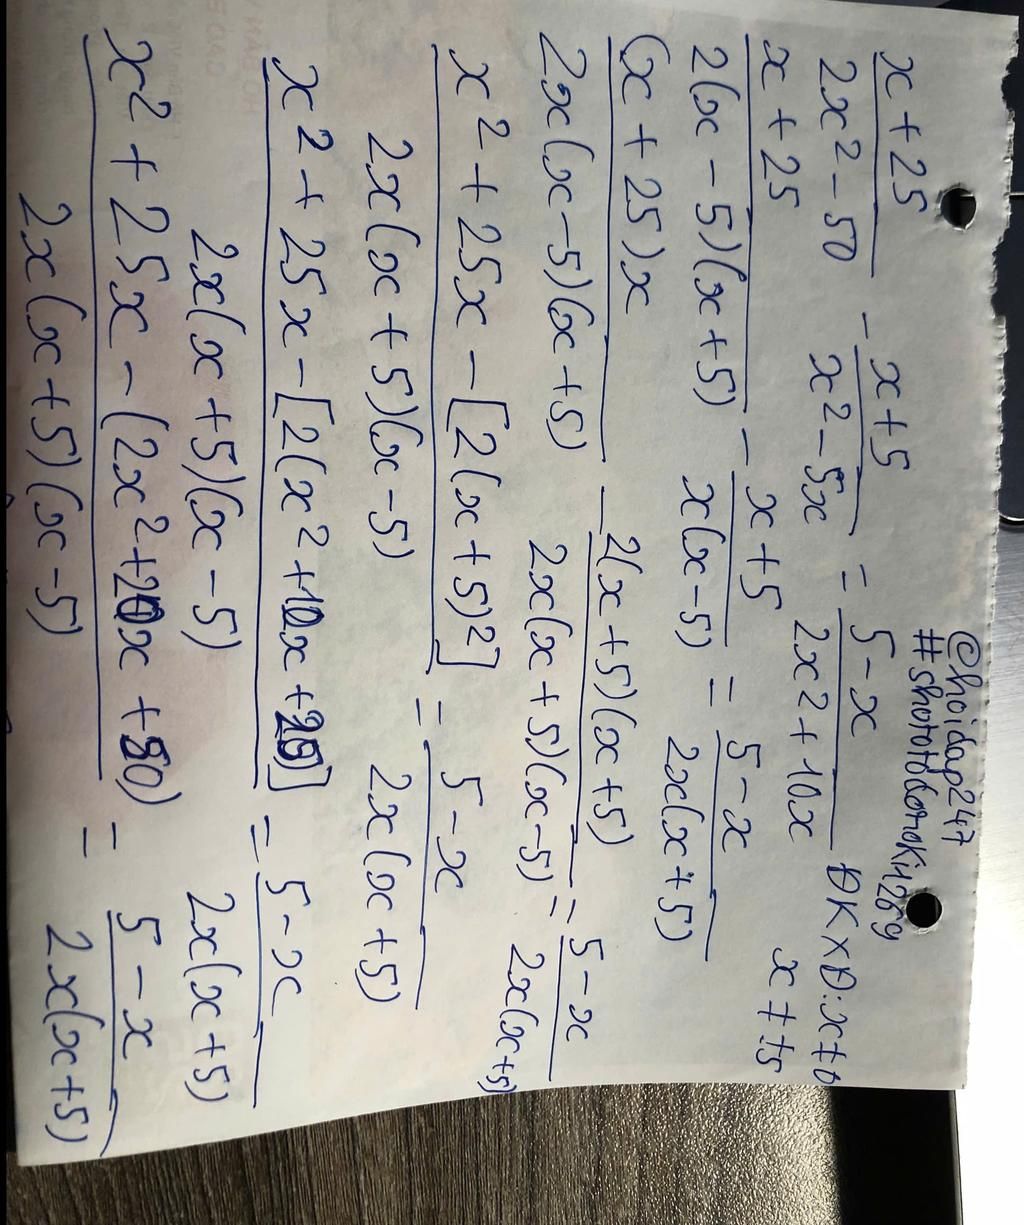 @hoidap247
#shototodoroki1269
x + 25 / 2x² - 50 - x + 5 / x² - 5x = 5 - x / 2x² + 10x ĐKXĐ: x ≠ 0
x ≠ ±5
x + 25 / 2(x - 5)(x + 5) - x + 5 / x(x - 5) = 5 - x / 2x(x + 5)
(x + 25)x / 2x(x - 5)(x + 5) - 2(x + 5)(x + 5) / 2x(x + 5)(x - 5) = 5 - x / 2x(x + 5)
x² + 25x - [2(x + 5)²] / 2x(x + 5)(x - 5) = 5 - x / 2x(x + 5)
x² + 25x - [2(x² + 10x + 25)] / 2x(x + 5)(x - 5) = 5 - x / 2x(x + 5)
x² + 25x - (2x² + 20x + 50) / 2x(x + 5)(x - 5) = 5 - x / 2x(x + 5)